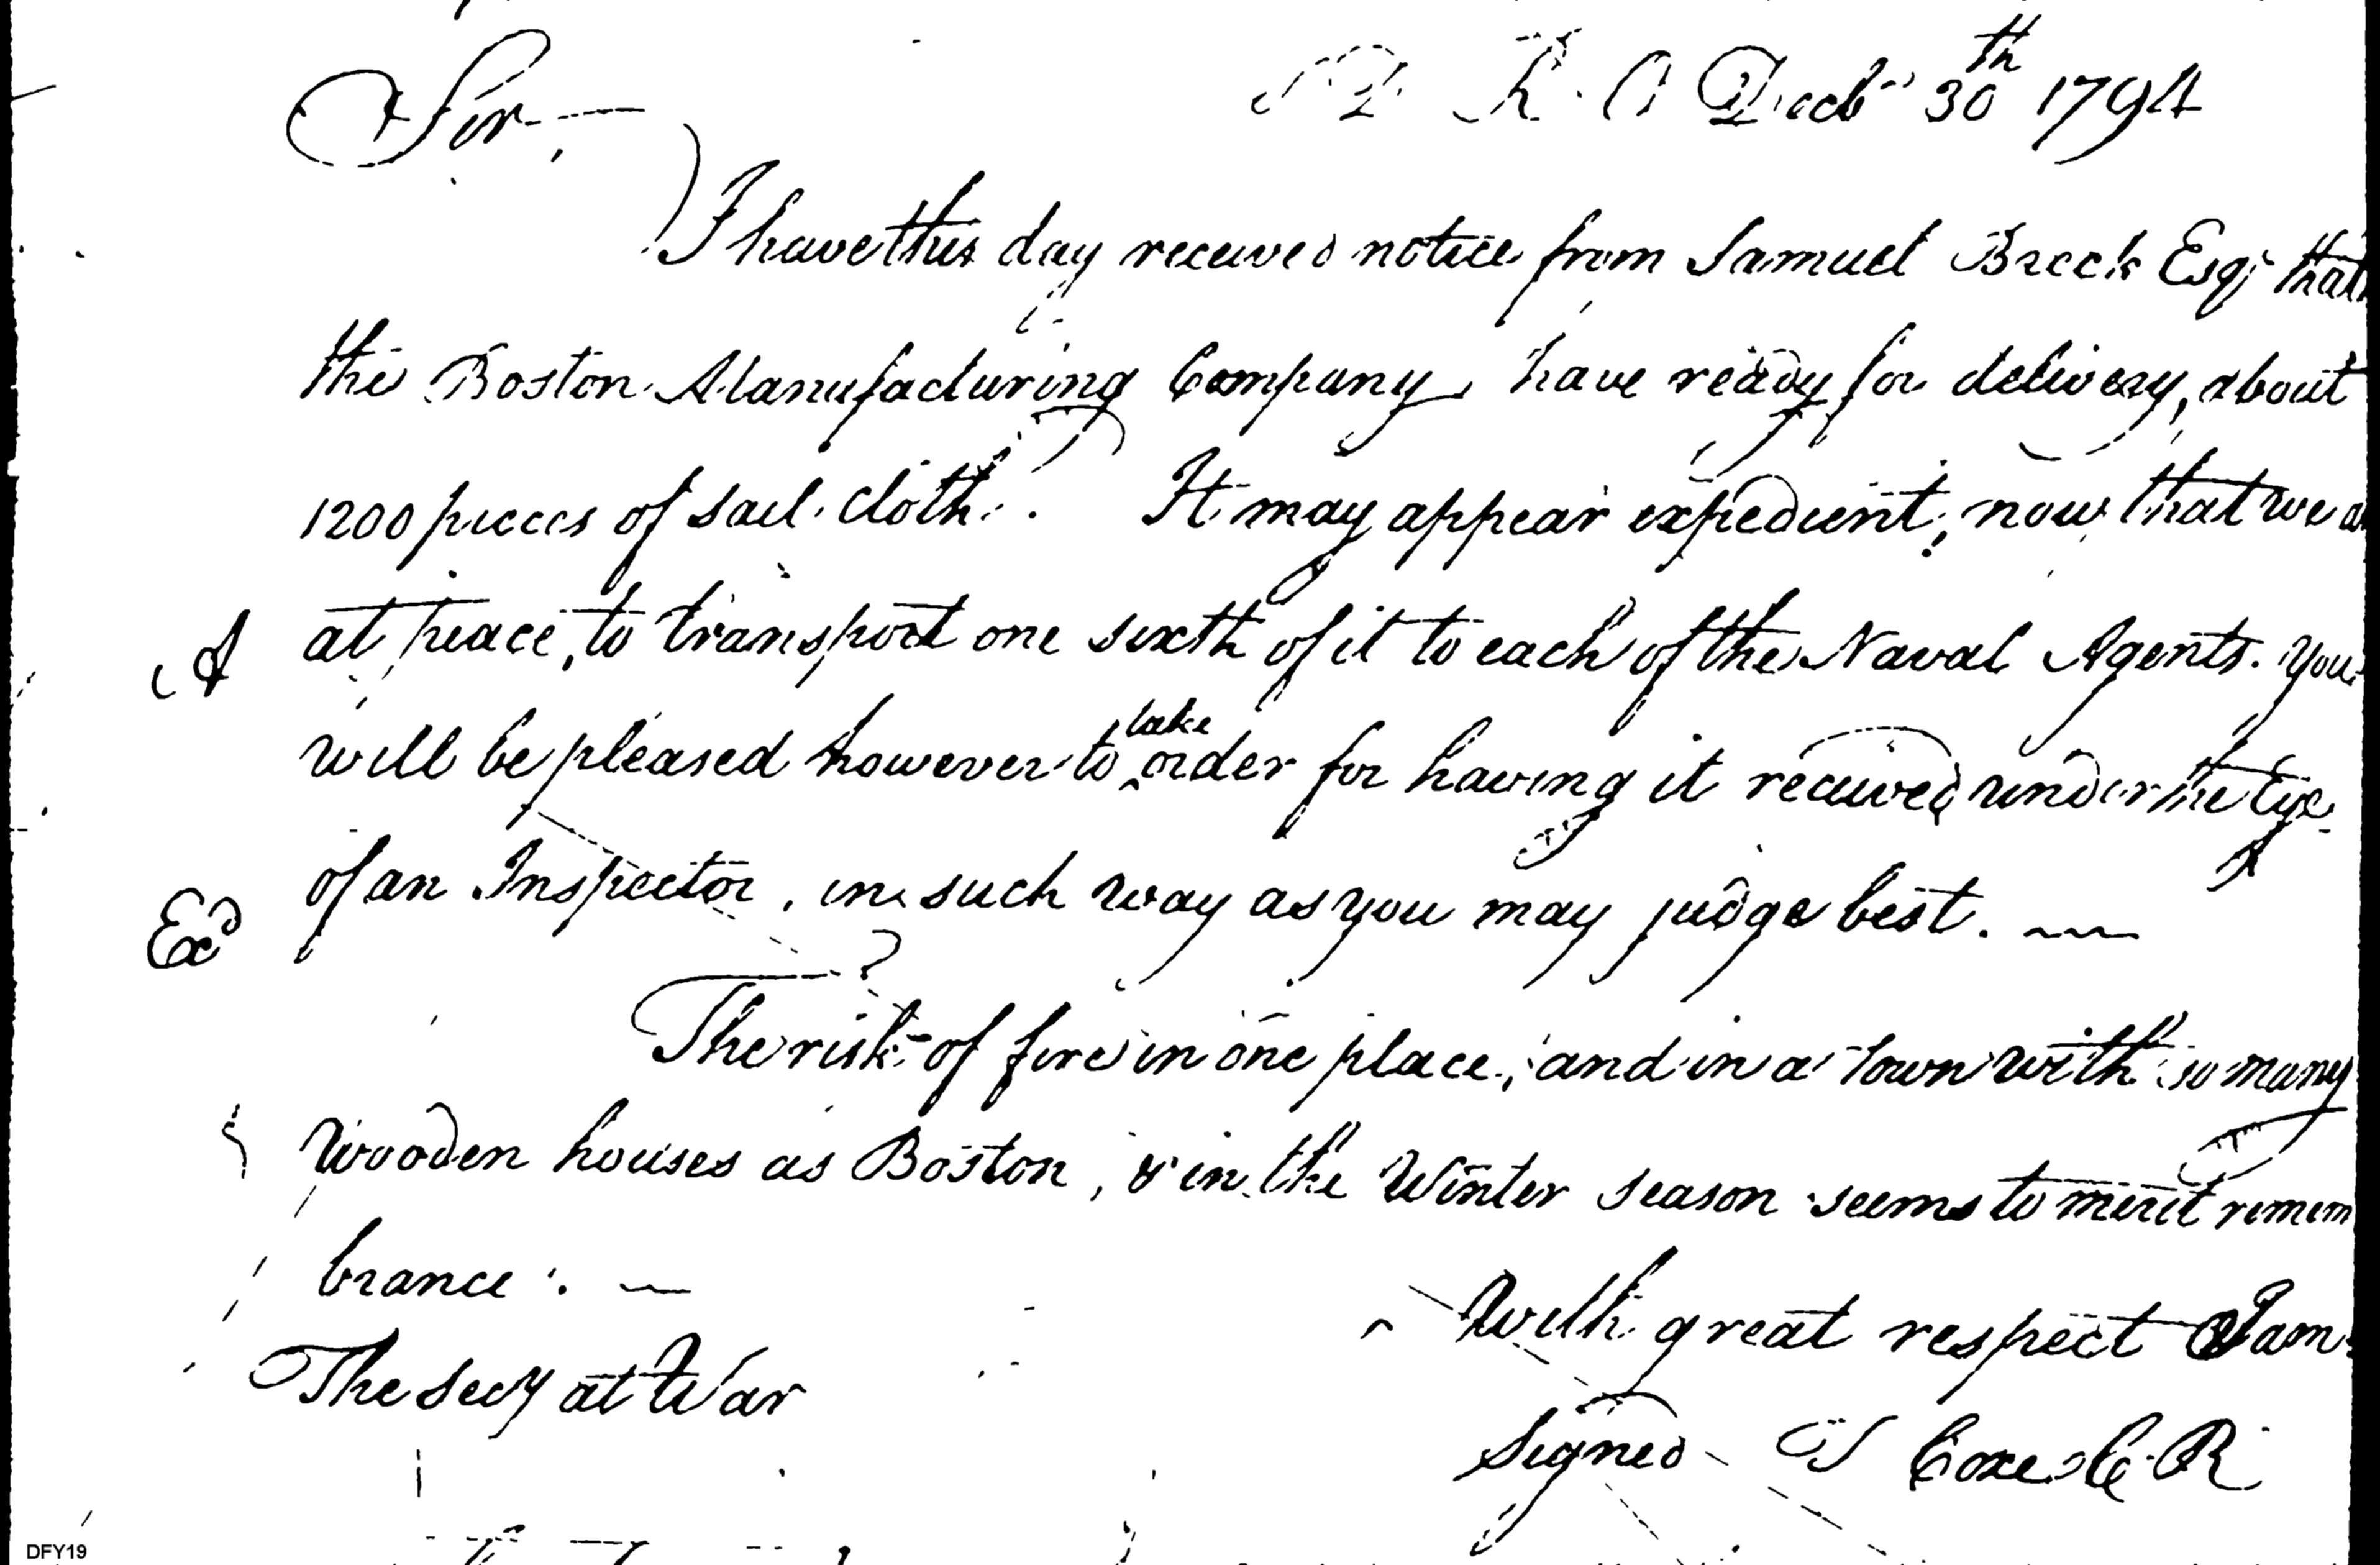 Sir,
T. D. R. O Decbr 30th 1794
I have this day received notice from Samuel Breck Esqr that
the Boston Manufacturing Company have ready for delivery, about
1200 pieces of sail cloth. It may appear expedient, now that we a
A at peace, to transport one sixth of it to each of the Naval Agents. You
take
will be pleased however to ^ order for having it received under the Eye
Exd of an Inspector, in such way as you may judge best.
The risk of fire in one place, and in a town with so many
Wooden houses as Boston, & in the Winter season seems to merit remem
brance.
With great respect I am
The Secy at War
Signed T Coxe C. R
DFY19